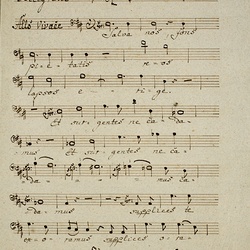 Allo vivace
Salva nos fons
pie - tatis re - os
lapsos e - ri - ge.
Et sur - gentes ne ca - da -
mus Et sur - gentes ne ca -
da - - - mus
- da - mus supplices te
ex - o - ramus supplices ora -